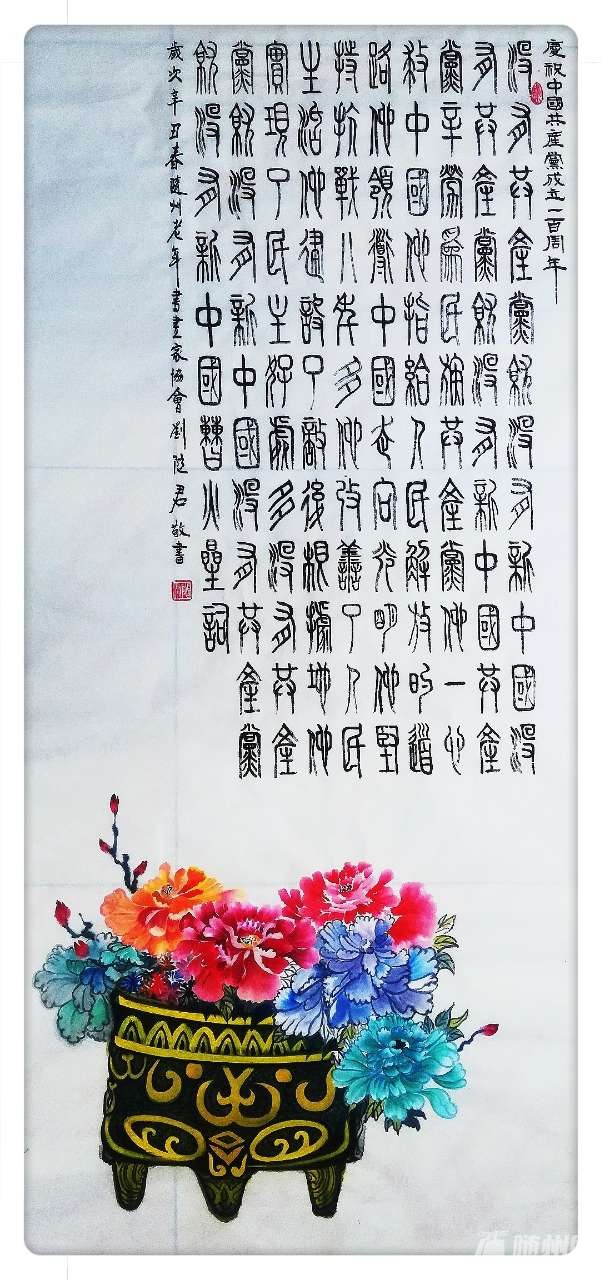 慶祝中國共産黨成立一百周年
沒有共產黨就沒有新中國沒
有共產黨就沒有新中國共產
黨辛勞為民族共產黨他一心
救中國他指給人民解放的道
路他領導中國走向光明他堅
持抗戰八年多他改善了人民
生活他建設了敵後根據地他
實現了民主好處多沒有共產
黨就沒有新中國沒有共產黨
就沒有新中國曹火星詞
歲次辛丑春隨州老年書畫家協會劉君敬書
随州